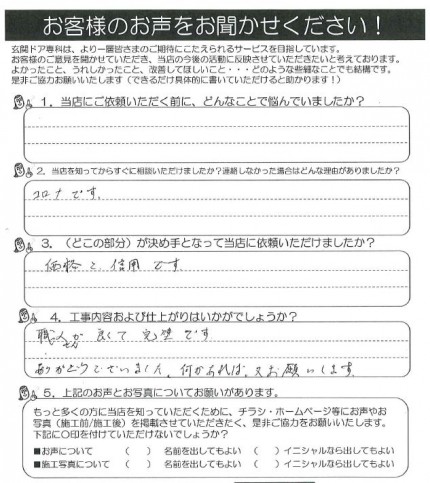 お客様のお声をお聞かせください！
玄関ドア専科は、より一層皆さまのご期待にこたえられるサービスを目指しています。
お客様のご意見を聞かせていただき、当店の今後の活動に反映させていただきたいと考えております。
よかったこと、うれしかったこと、改善してほしいこと・・・どのような些細なことでも結構です。
是非ご協力お願いいたします（できるだけ具体的に書いていただけると助かります！）
1．当店にご依頼いただく前に、どんなことで悩んでいましたか？
2．当店を知ってからすぐに相談いただけましたか？連絡しなかった場合はどんな理由がありましたか？
コロナです。
3．（どこの部分）が決め手となって当店に依頼いただけましたか？
価格と信用です
4．工事内容および仕上がりはいかがでしょうか？
職人が良くて完璧です
ありがとうございました。何かあれば、又お願いします。
5．上記のお声とお写真についてお願いがあります。
もっと多くの方に当店を知っていただくために、チラシ・ホームページ等にお声やお
写真（施工前/施工後）を掲載させていただきたく、是非ご協力をお願いいたします。
下記に〇印を付けていただけないでしょうか？
■お声について （ ） 名前を出してもよい （ ）イニシャルなら出してもよい
■施工写真について （ ） 名前を出してもよい （ ）イニシャルなら出してもよい